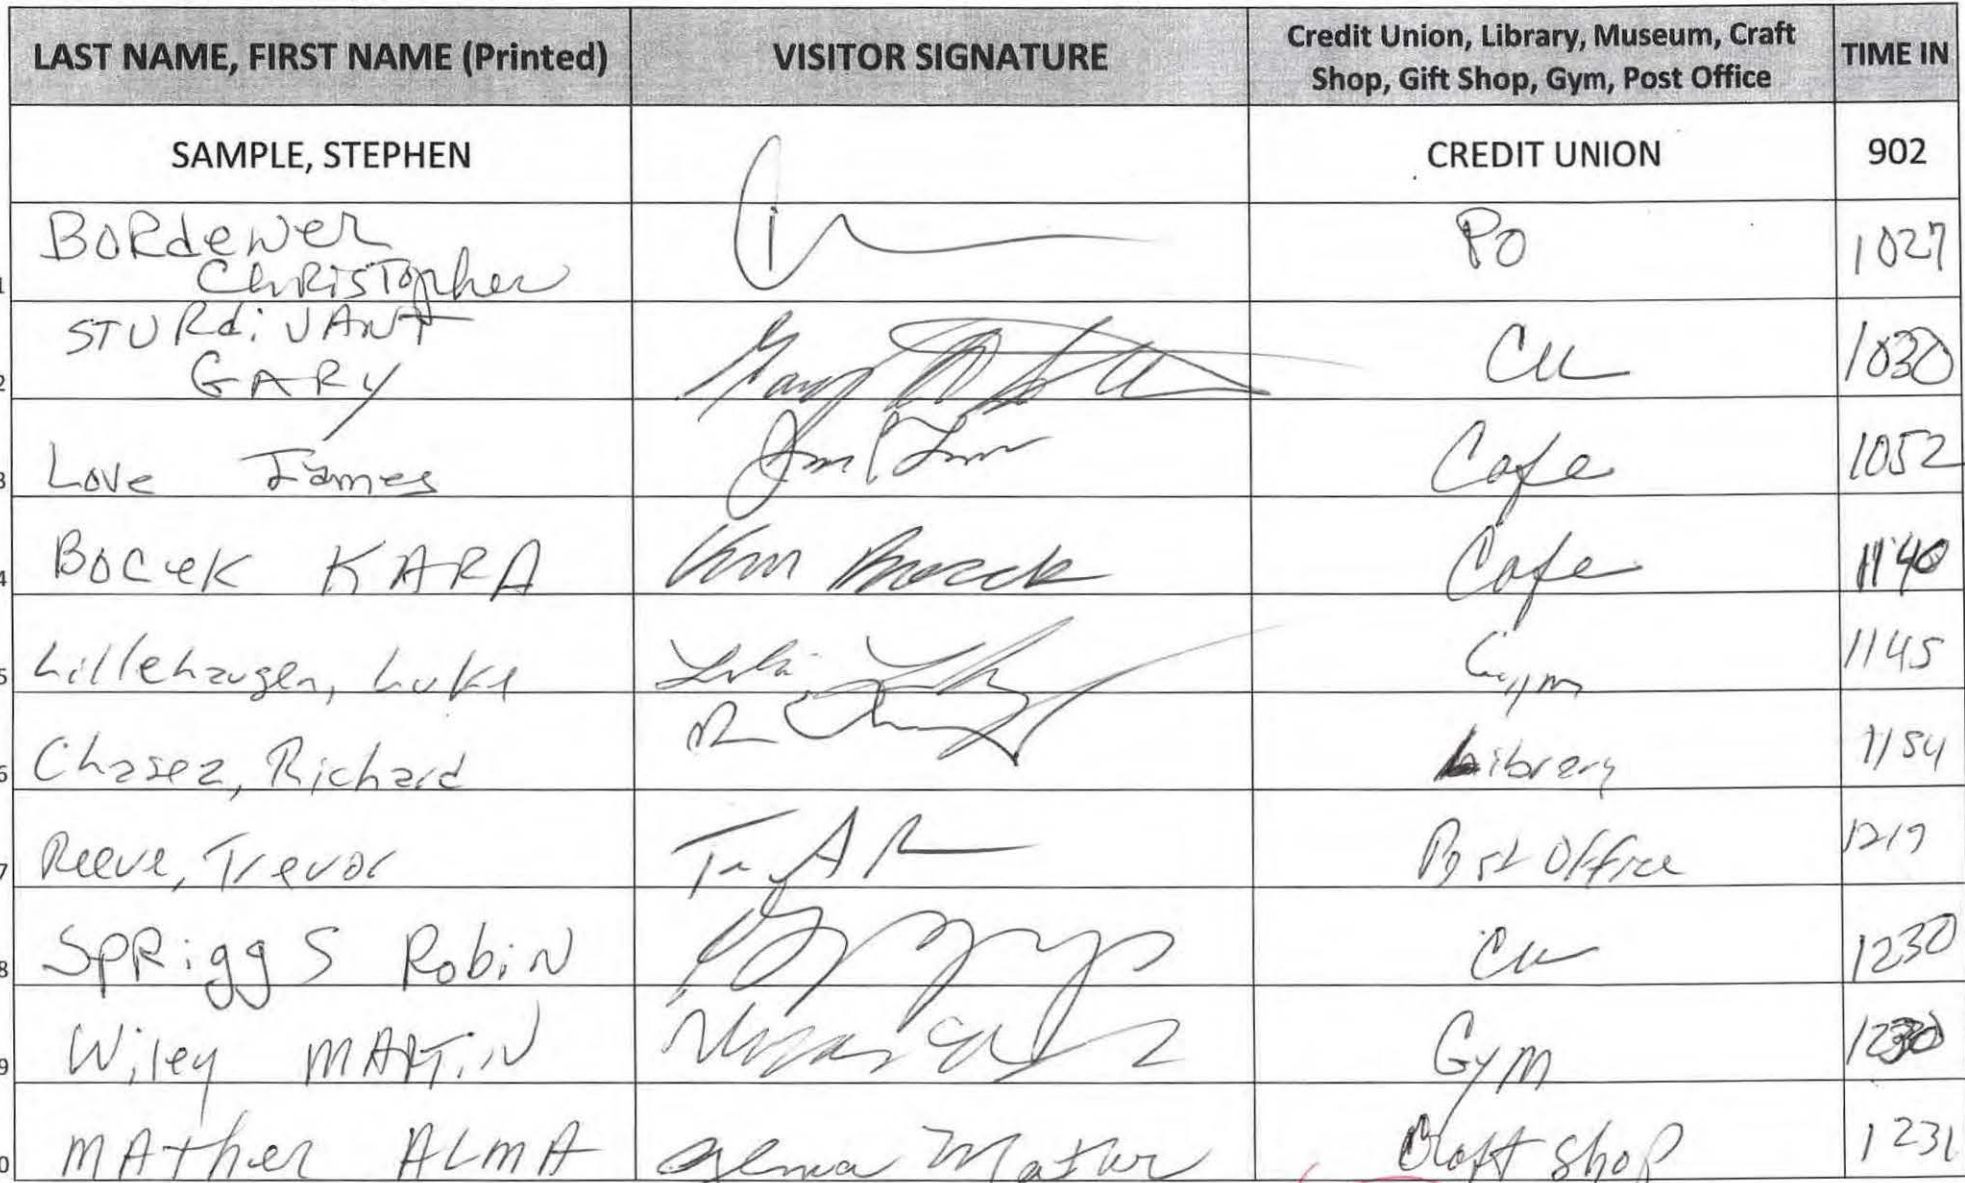 LAST NAME, FIRST NAME (Printed) VISITOR SIGNATURE Credit Union, Library, Museum, Craft Shop, Gift Shop, Gym, Post Office TIME IN
SAMPLE, STEPHEN CREDIT UNION 902
1 BORdeweR ChRISTopher PO 1027
2 STURdiVANT GARY CU 1030
3 Love James Cafe 1052
4 BOCeK KARA Cafe 1140
5 Lillehaugen, Luke Gym 1145
6 Chasez, Richard Library 1154
7 Reeve, Trevor Post Office 1219
8 SPRiggS RobiN CU 1230
9 Wiley MARTiN Gym 1230
0 MAther ALMA Alma Mather Craft Shop 1231